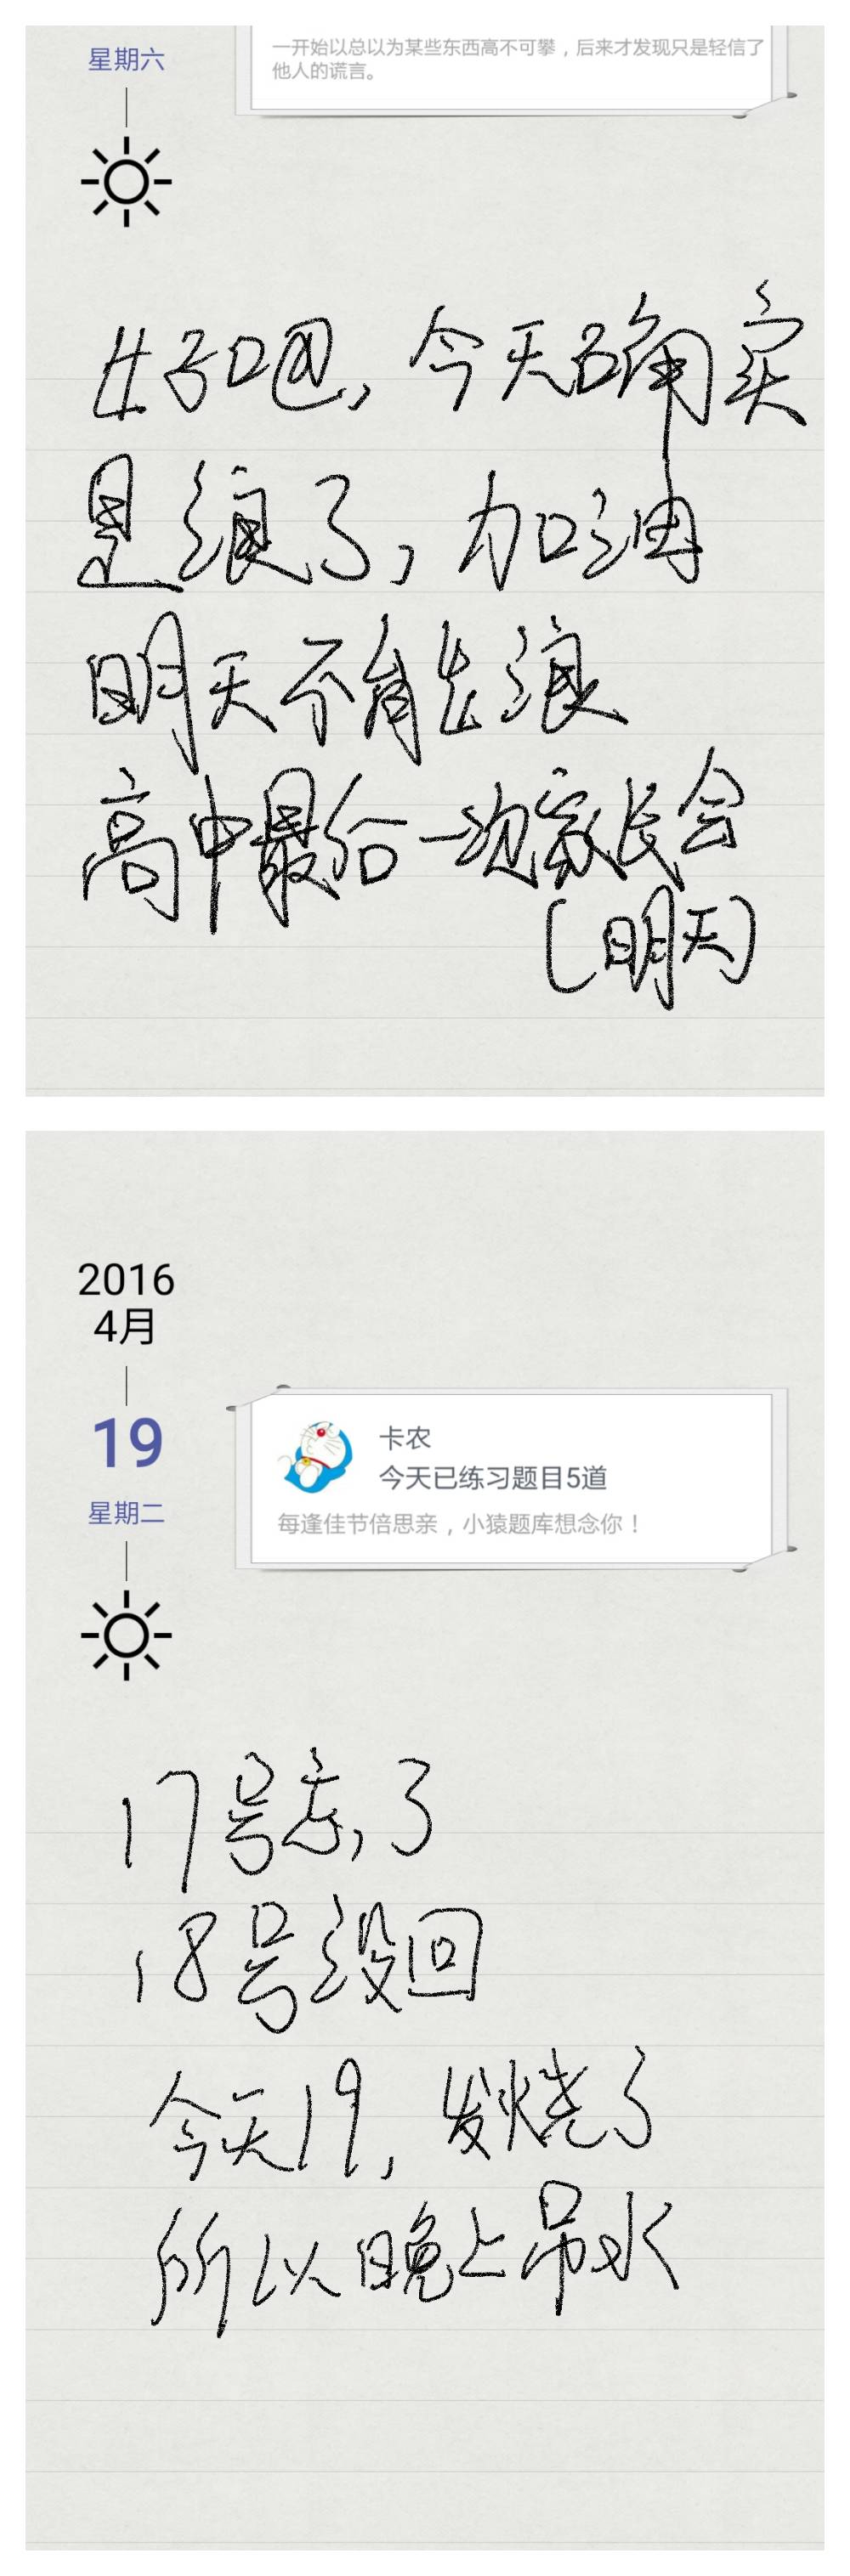 星期六
一开始以总以为某些东西高不可攀，后来才发现只是轻信了
他人的谎言。
好吧，今天确实
是浪了，加油
明天不能浪
高中最后一次家长会
(明天)
2016
4月
19
星期二
卡农
今天已练习题目5道
每逢佳节倍思亲，小猿题库想念你！
17号忘了
18号没回
今天19，发烧了
所以晚上吊水